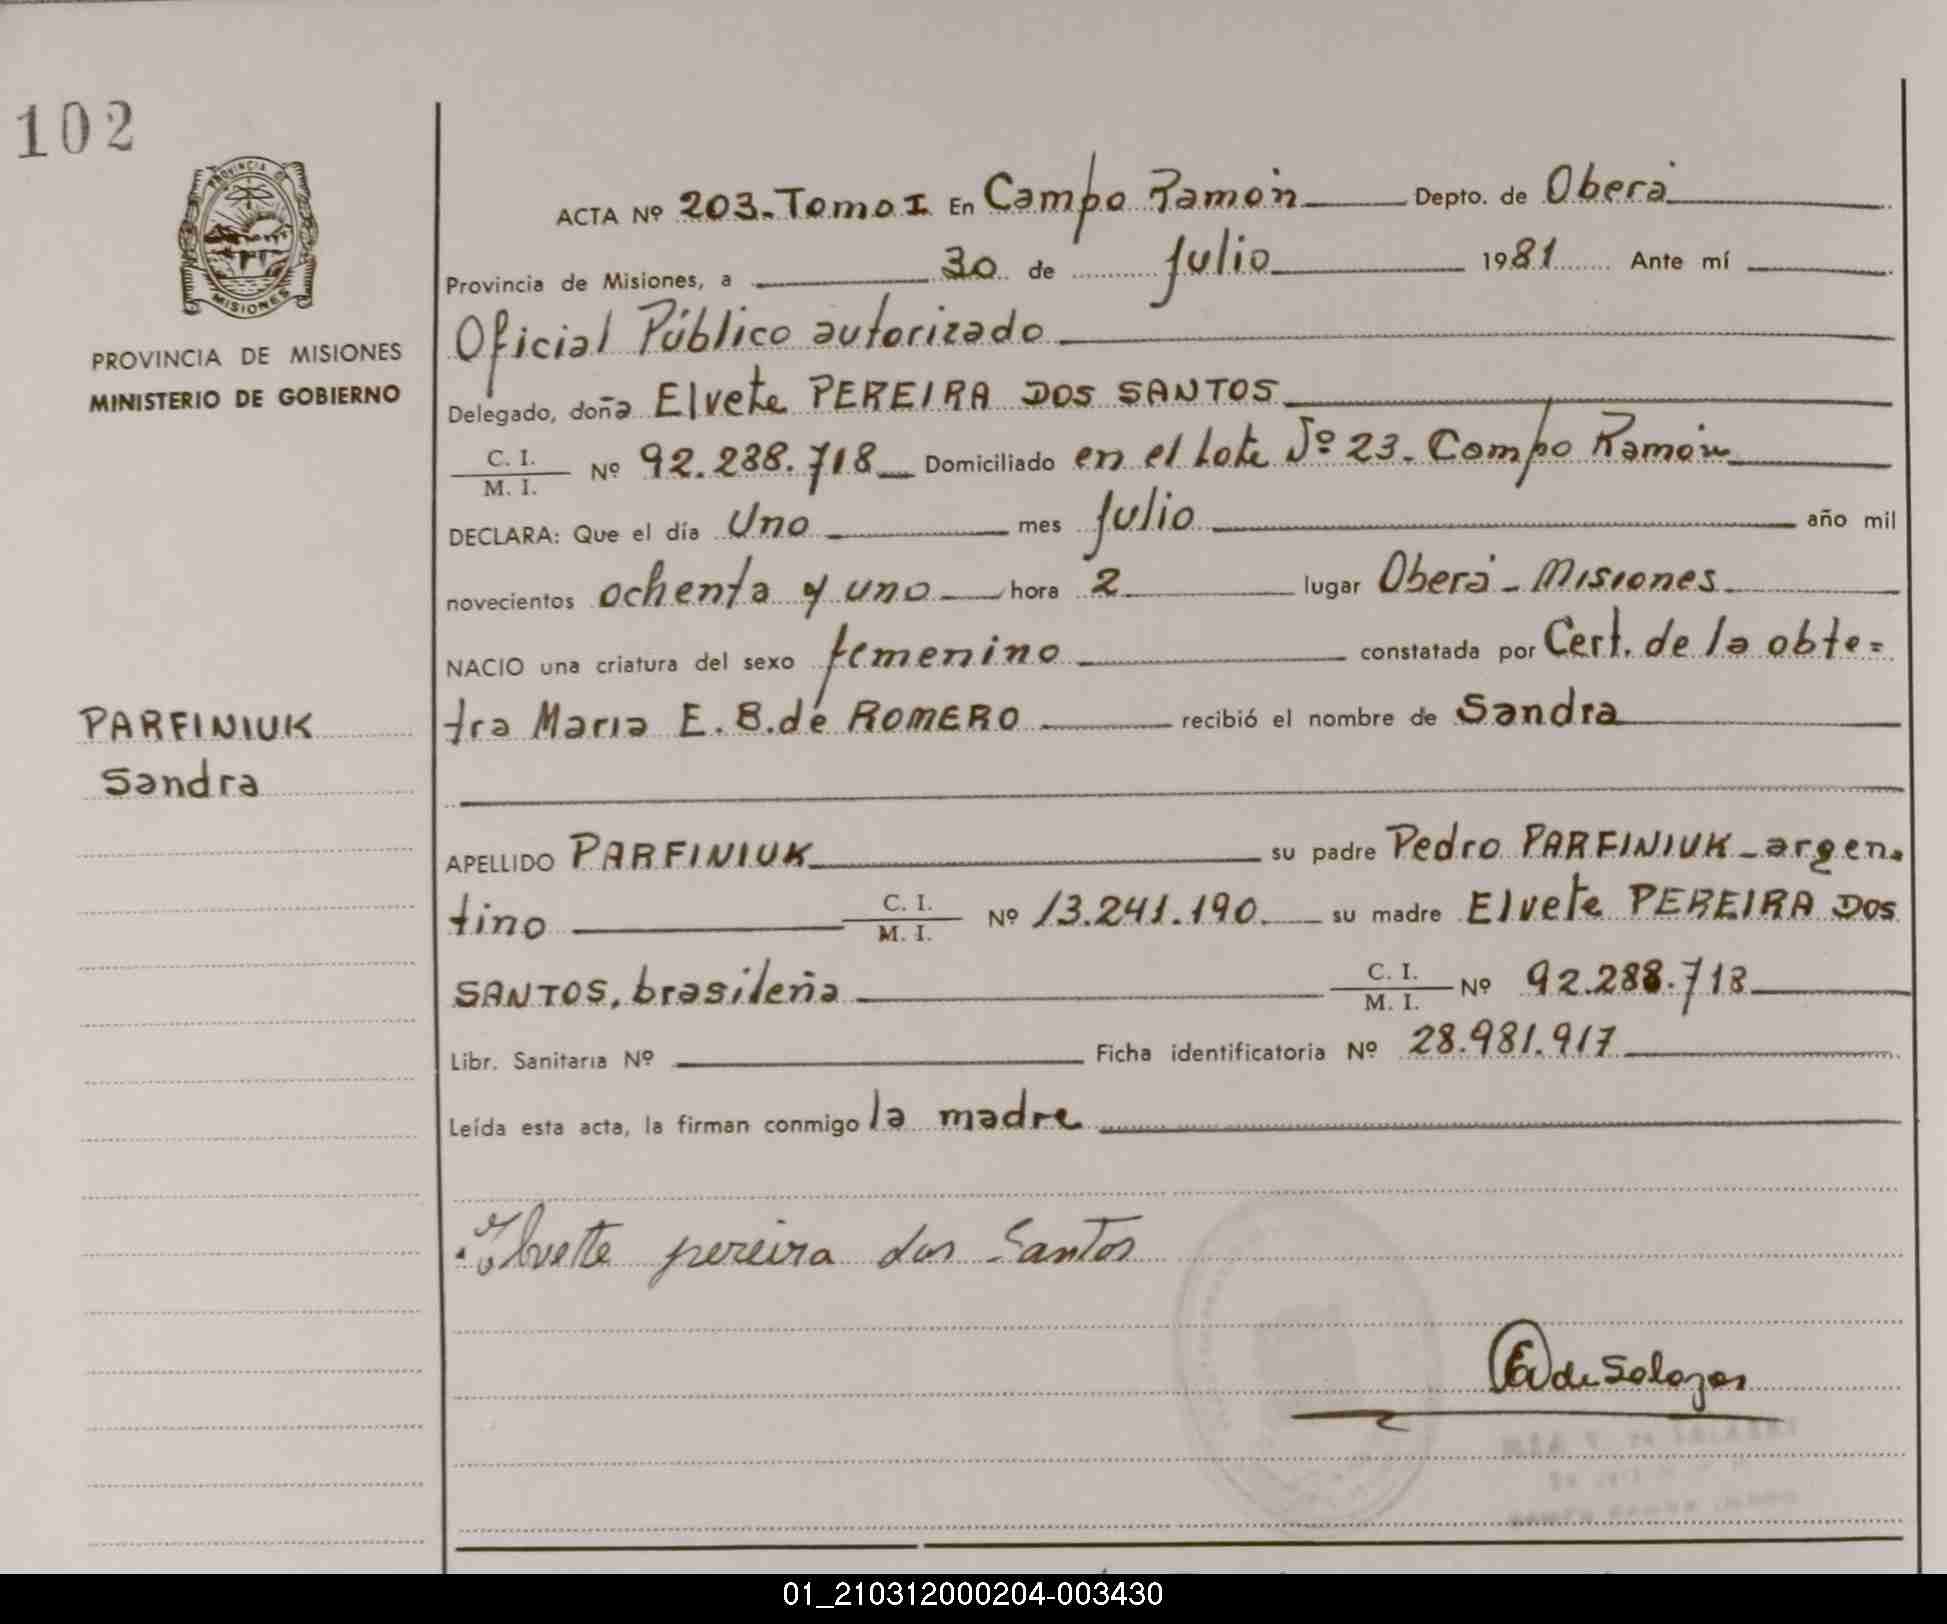 102
PROVINCIA DE
MISIONES
PROVINCIA DE MISIONES
MINISTERIO DE GOBIERNO
PARFINIUK
Sandra
ACTA Nº 203-Tomo I En Campo Ramón Depto. de Oberá
Provincia de Misiones, a 30 de julio 1981 Ante mí
Oficial Público autorizado
Delegado, doña Elvete PEREIRA DOS SANTOS
C. I.
M. I. Nº 92.288.718 Domiciliado en el Lote Nº 23. Campo Ramón
DECLARA: Que el día Uno mes julio año mil
novecientos ochenta y uno hora 2 lugar Oberá - Misiones
NACIO una criatura del sexo femenino constatada por Cert. de la obte=
tra Maria E. B. de ROMERO recibió el nombre de Sandra
APELLIDO PARFINIUK su padre Pedro PARFINIUK - argen.
tino C. I.
M. I. Nº 13.241.190. su madre Elvete PEREIRA DOS
SANTOS, brasileña C. I.
M. I. Nº 92.288.718
Libr. Sanitaria Nº Ficha identificatoria Nº 28.981.917
Leída esta acta, la firman conmigo la madre
pereira dos Santos
de Salazar
01_210312000204-003430